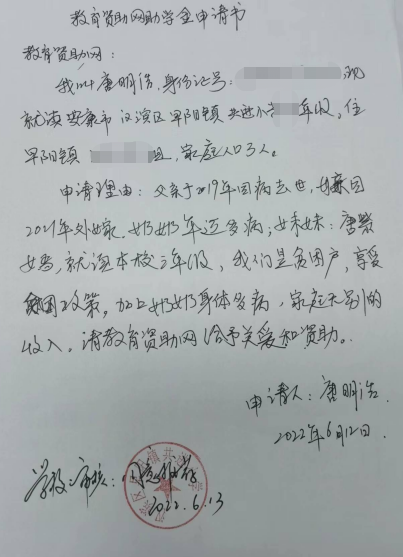 教育资助网助学金申请书
教育资助网：
我叫唐明浩，身份证号： 现
就读安康市汉滨区早阳镇共进小学 年级，住
早阳镇 组，家庭人口3人。
申请理由：父亲于2019年因病去世，母亲因
2021年外嫁，奶奶年迈多病；妹妹：唐
就读本校三年级，我们是贫困户，享受
政策。加上奶奶身体多病，家庭无别的
收入。请教育资助网给予关爱和资助。
申请人：唐明浩
2022年6月12日
学校审核：同意推荐
2022.6.13